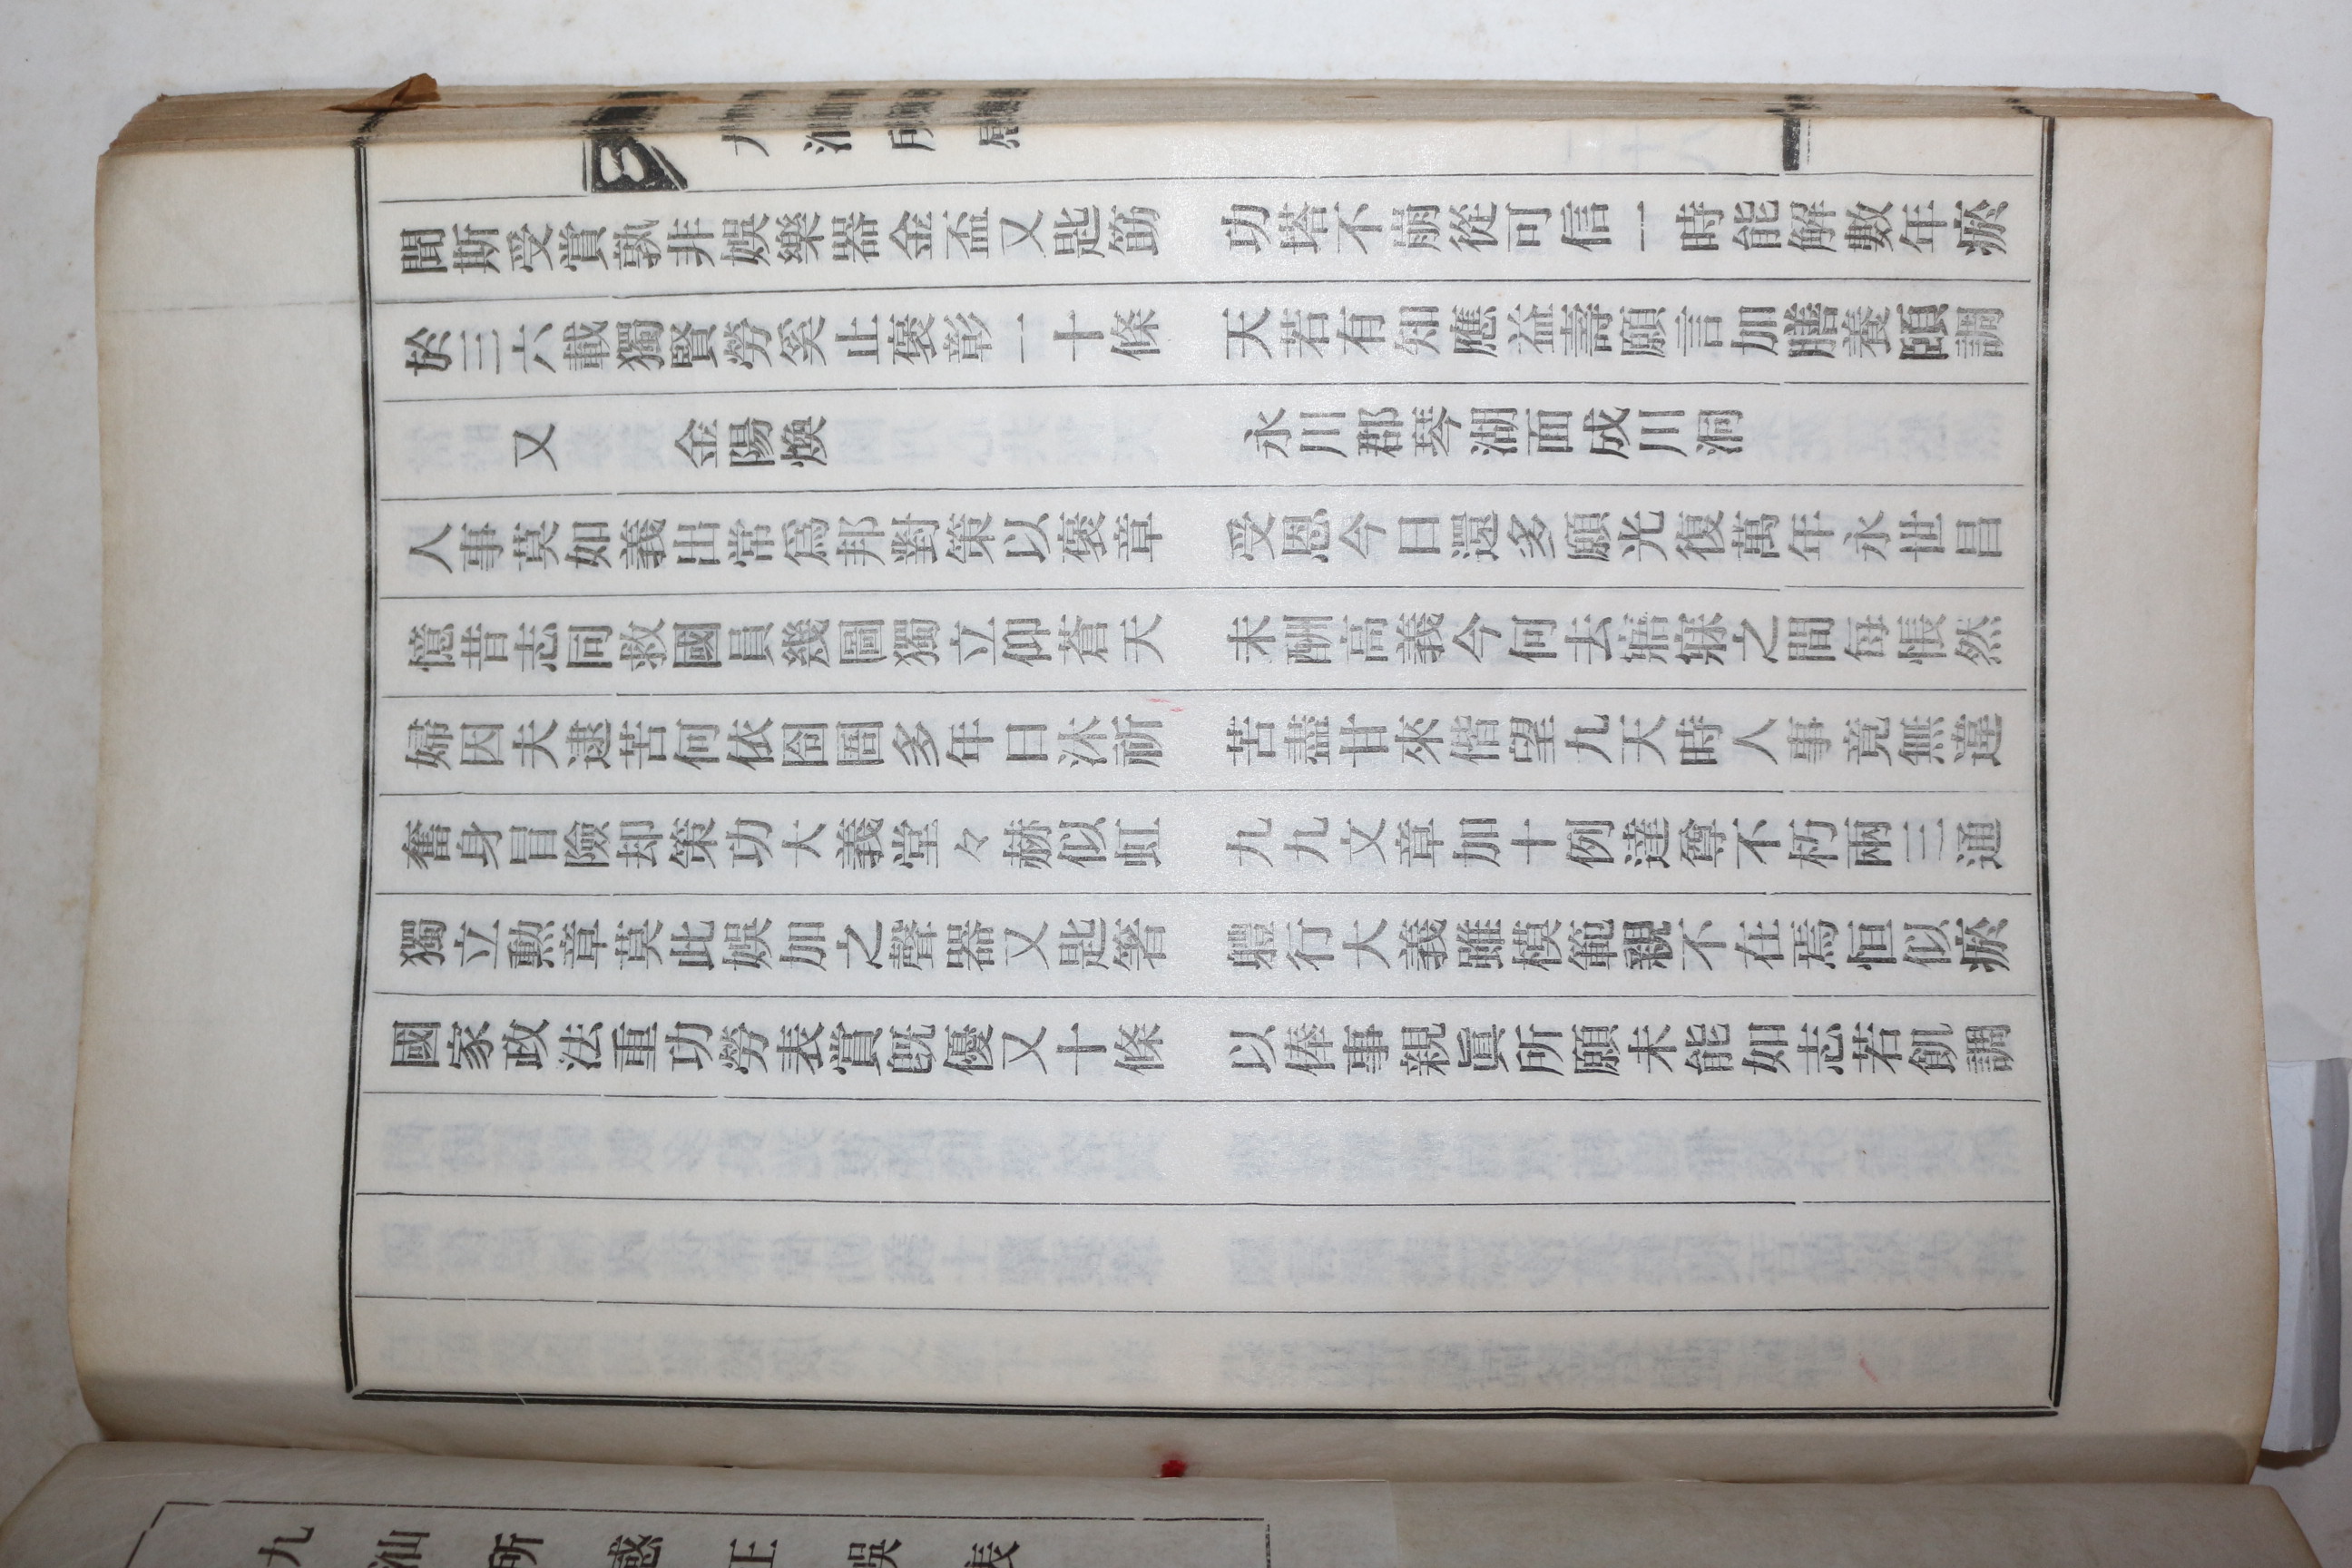 九汕所感
聞斯受賞孰非娛樂器金盃又匙筯 功塔不崩從可信一時能解數年瘀
於三六載獨賢勞奚止褒彰一十條 天若有知應益壽願言加膳養頤調
又 金陽煥 永川郡琴湖面成川洞
人事莫如義出常爲邦對策以褒章 受恩今日還多願光復萬年永世昌
憶昔志同救國員幾圖獨立仰蒼天 未酬高義今何去寤寐之間每悵然
婦因夫逮苦何依囹圄多年日沐祈 苦盡甘來偕望九天時人事竟無違
奮身冒險却策功大義堂々赫似虹 九九文章加十例達尊不朽兩三通
獨立勳章莫此娛加之聲器又匙箸 軆行大義雖模範親不在焉恒似瘀
國家政法重功勞表賞旣優又十條 以俸事親眞所願未能如志若飢調
九汕所感正誤表